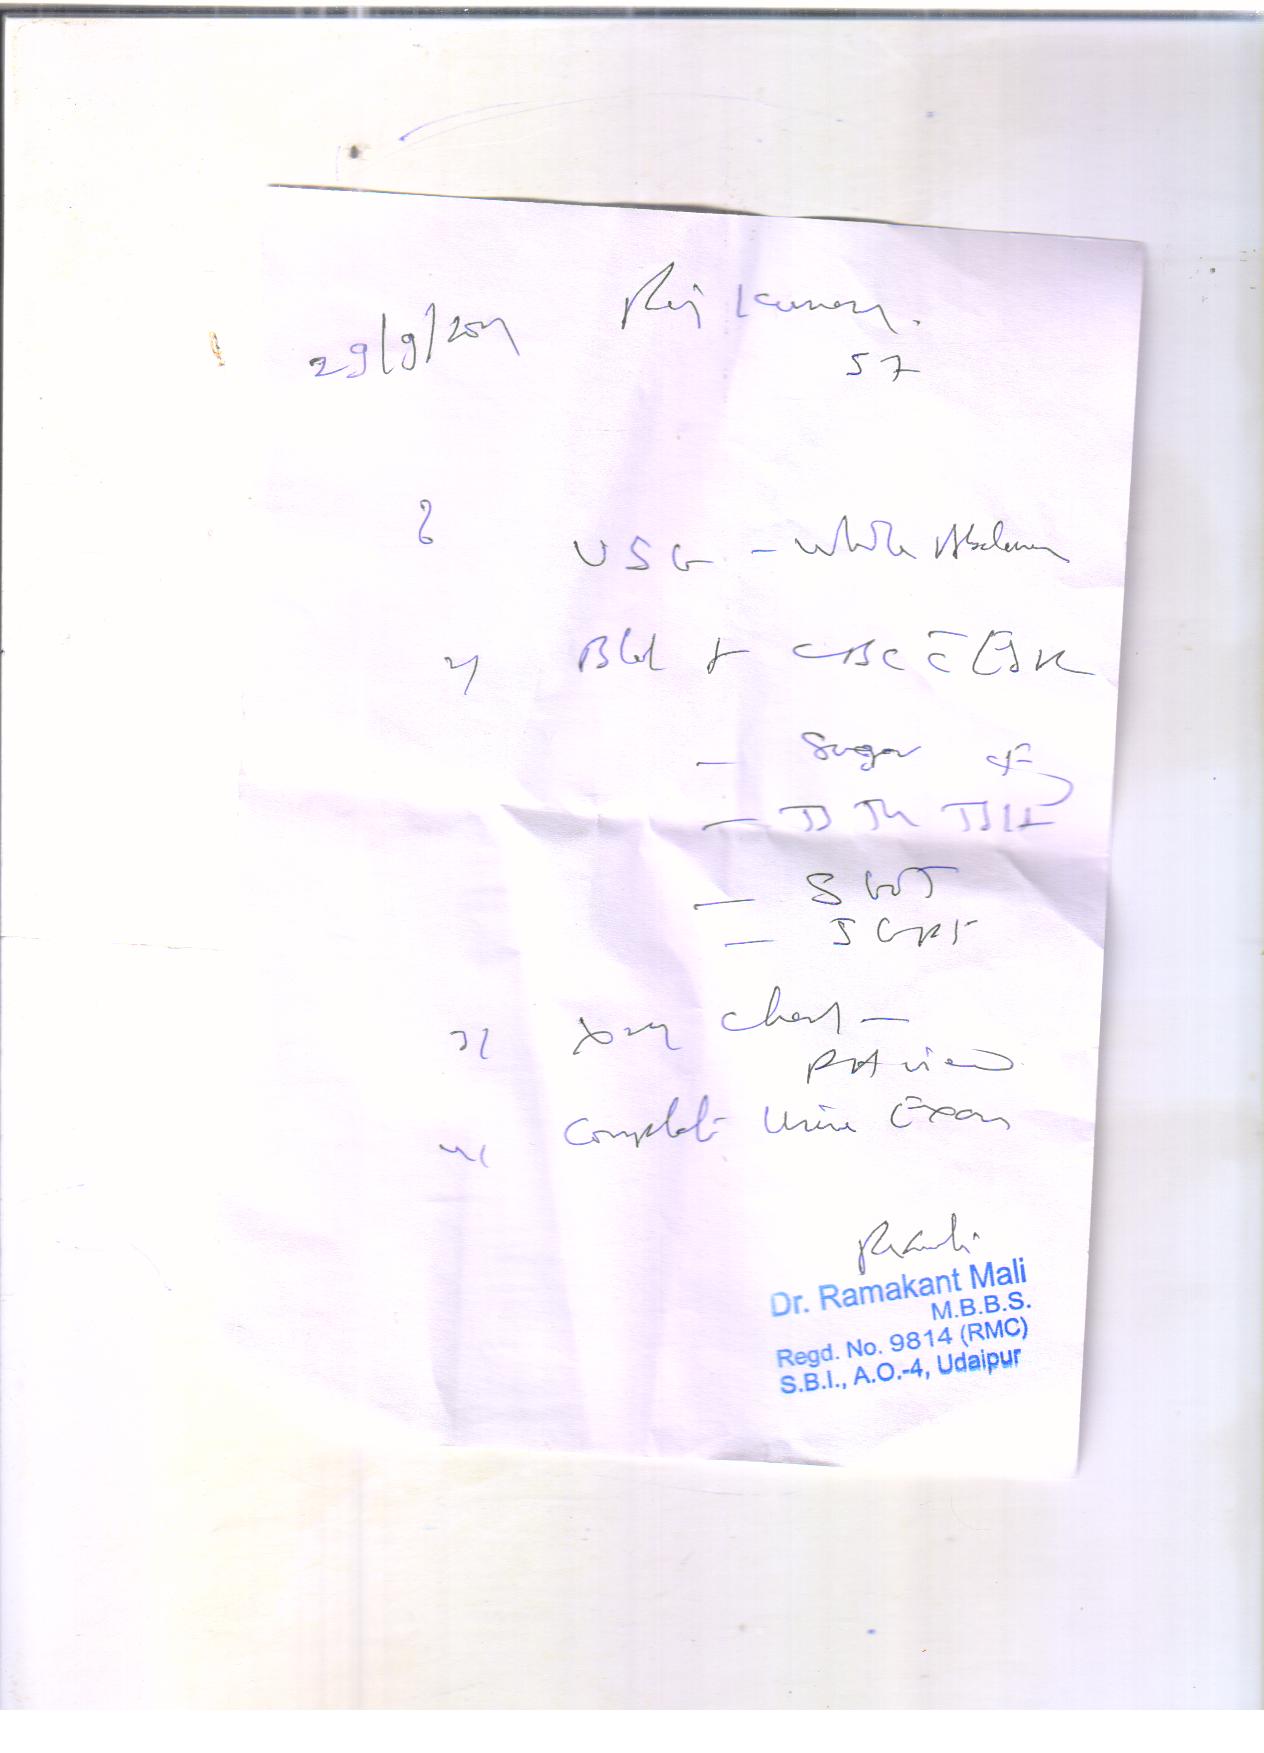 29/9/201 Raj Kumar.
57
1/ USG - Whole Abdomen
2/ Bld + CBC c̄ ESR
- Sugar F
- T3 T4 TSH
- SGOT
- SGPT
3/ Xray Chest -
PA view
4/ Complete Urine Exam
Dr. Ramakant Mali
M.B.B.S.
Regd. No. 9814 (RMC)
S.B.I., A.O.-4, Udaipur